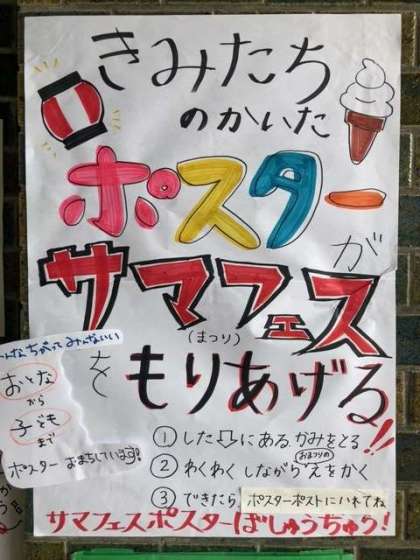 きみたち
のかいた
ポスターが
サマフェス
(まつり)
をもりあげる!!
んなちがってみんないい
おとな
から
子ども
まで
ポスターおまちしています!
① した⇩にあるかみをとる
② わくわくしながらおまつりのえをかく
③ できたら、ポスターポストにいれてね
サマフェスポスターぼしゅうちゅう!